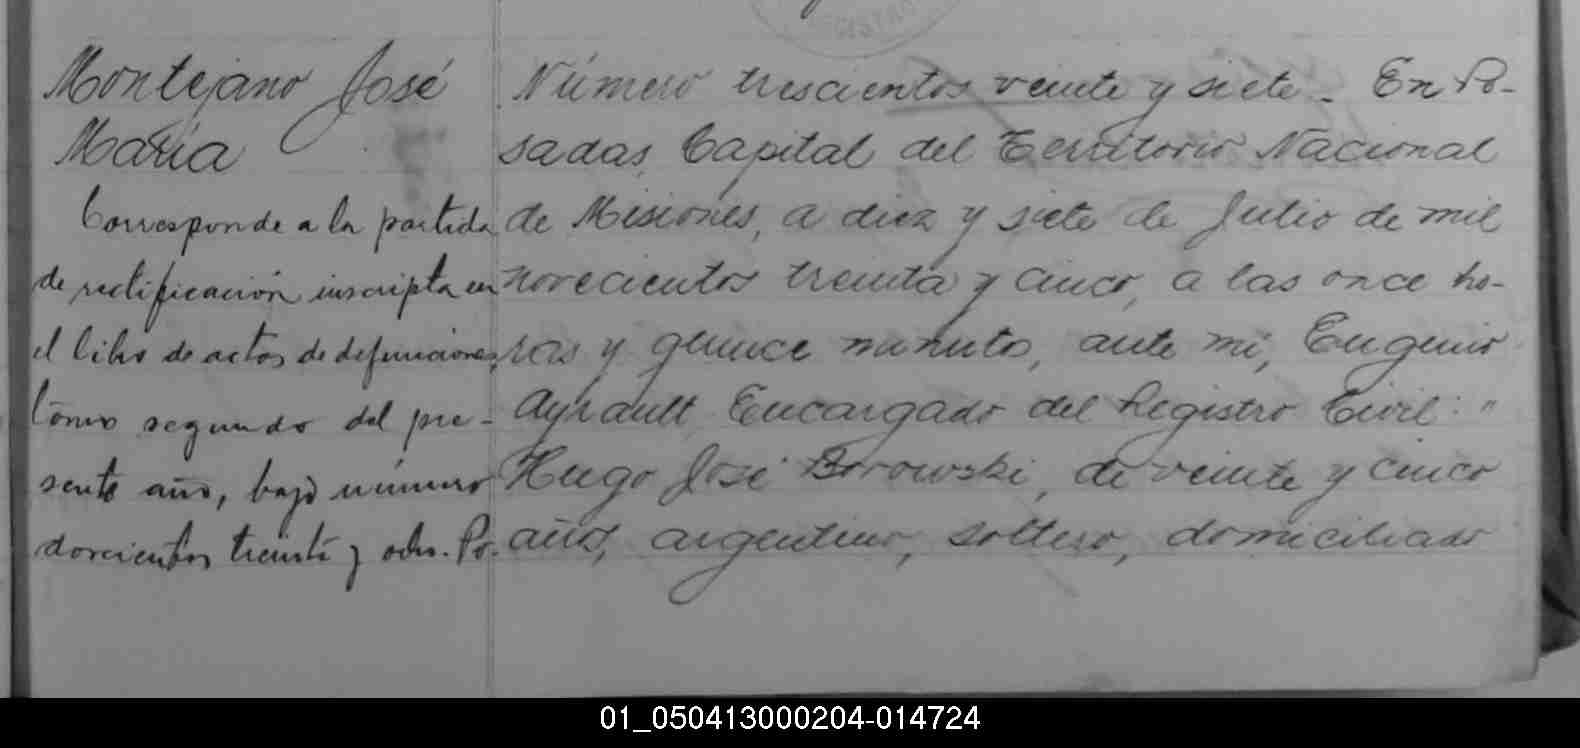 REGISTRO
Montejano José
María
Corresponde a la partida
de rectificación inscripta en
el libro de actas de defunciones,
tomo segundo del pre-
sente año, bajo número
doscientos treinta y ocho. Po-
Número trescientos veinte y siete. En Po-
sadas, Capital del Territorio Nacional
de Misiones, a diez y siete de Julio de mil
novecientos treinta y cinco, a las once ho-
ras y quince minutos, ante mí, Eugenio
Ayrault, Encargado del Registro Civil: "
Hugo José Borowski, de veinte y cinco
años, argentino, soltero, domiciliado
01_050413000204-014724